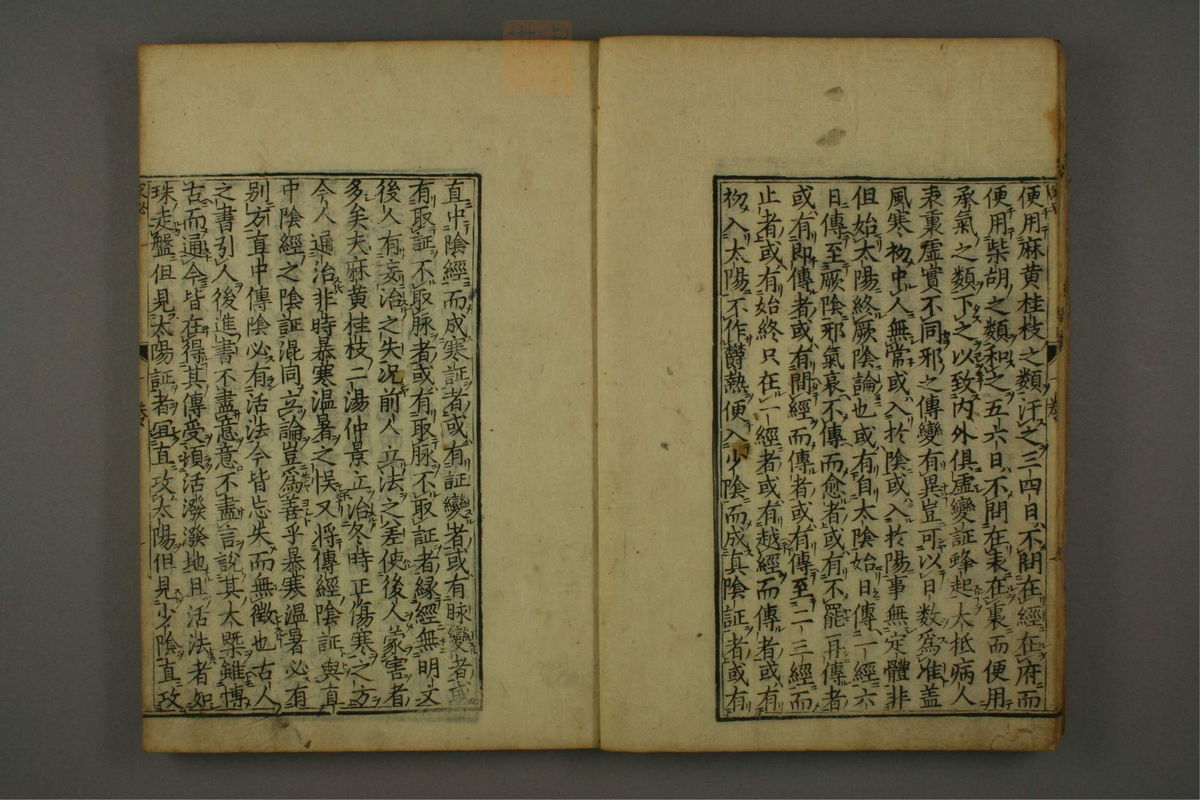 便用麻黄桂枝之類汗之三四日不問在經在府而
便用柴胡之類和之五六日不問在表在裏而便用
承氣之類下之以致内外俱虚變証蜂起太抵病人
表裏虚實不同邪之傳變有異豈可以日數爲准盖
風寒初中人無常或入於陰或入於陽事無定體非
但始太陽終厥陰論也或有自太陰始日傳一經六
日傳至厥陰邪氣衰不傳而愈者或有不罷再傳者
或有即傳者或有間經而傳者或有傳至二三經而
止者或有始終只在一經者或有越經而傳者或有
初入太陽不作欝熱便入少陰而成真陰証者或有
直中陰經而成寒証者或有証變者或有脉變者或
有取証不取脉者或有取脉不取証者縁經無明文
後人有妄治之失况前人立法之差使後人蒙害者
多矣夫麻黄桂枝二湯仲景立治冬時正傷寒之方
今人通治非時暴寒温暑之悞又将傳經陰証與直
中陰經之陰証混同立論豈爲善乎暴寒温暑必有
别方直中傳陰必有活法今皆忘失而無徴也古人
之書引人後進書不盡意意不盡言說其大槩雖博
古而通今皆在得其傳受頓活潑潑地且活法者如
珠走盤但見太陽証者直攻太陽但見少陰直攻